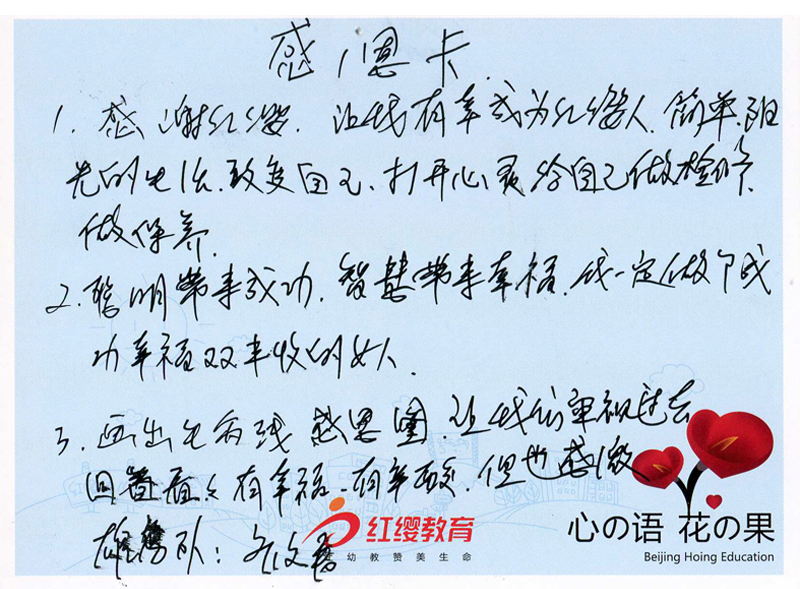 感恩卡
1. 感谢红缨. 让我有幸成为红缨人. 简单.阳
光的生活.改变自己、打开心灵给自己做检修、
做保养.
2. 聪明带来成功. 智慧带来幸福. 我一定做个成
功幸福双丰收的女人.
3. 画出生命线 感恩图. 让我们重视过去
回首看人有幸福. 有辛酸. 但也感激
雄鹰队:
红缨教育
幼教赞美生命
心の语 花の果
Beijing Hoing Education